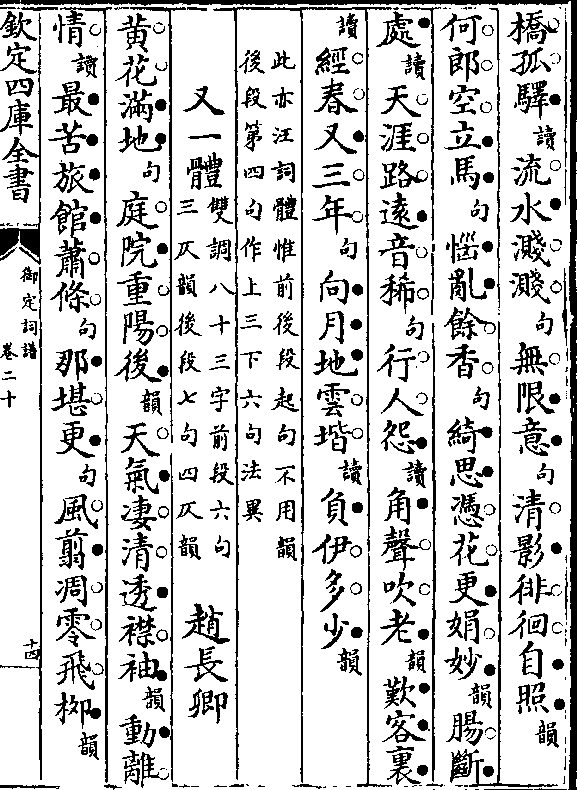 橋孤驛讀流水濺濺句無限意句清影徘徊自照韻
何郎空立馬句惱亂餘香句綺思憑花更娟妙韻腸斷
處讀天涯路遠音稀句行人怨讀角聲吹老韻歎客裏
讀經春又三年句向月地雲堦讀負伊多少韻
此亦汪詞體惟前後段起句不用韻
後段第四句作上三下六句法異
又一體雙調八十三字前段六句
三仄韻後段七句四仄韻
趙長卿
黃花滿地句庭院重陽後韻天氣凄清透襟袖韻動離
情讀最苦旅館蕭條句那堪更句風翦凋零飛柳韻
欽定四庫全書
御定詞譜
卷二十
十四